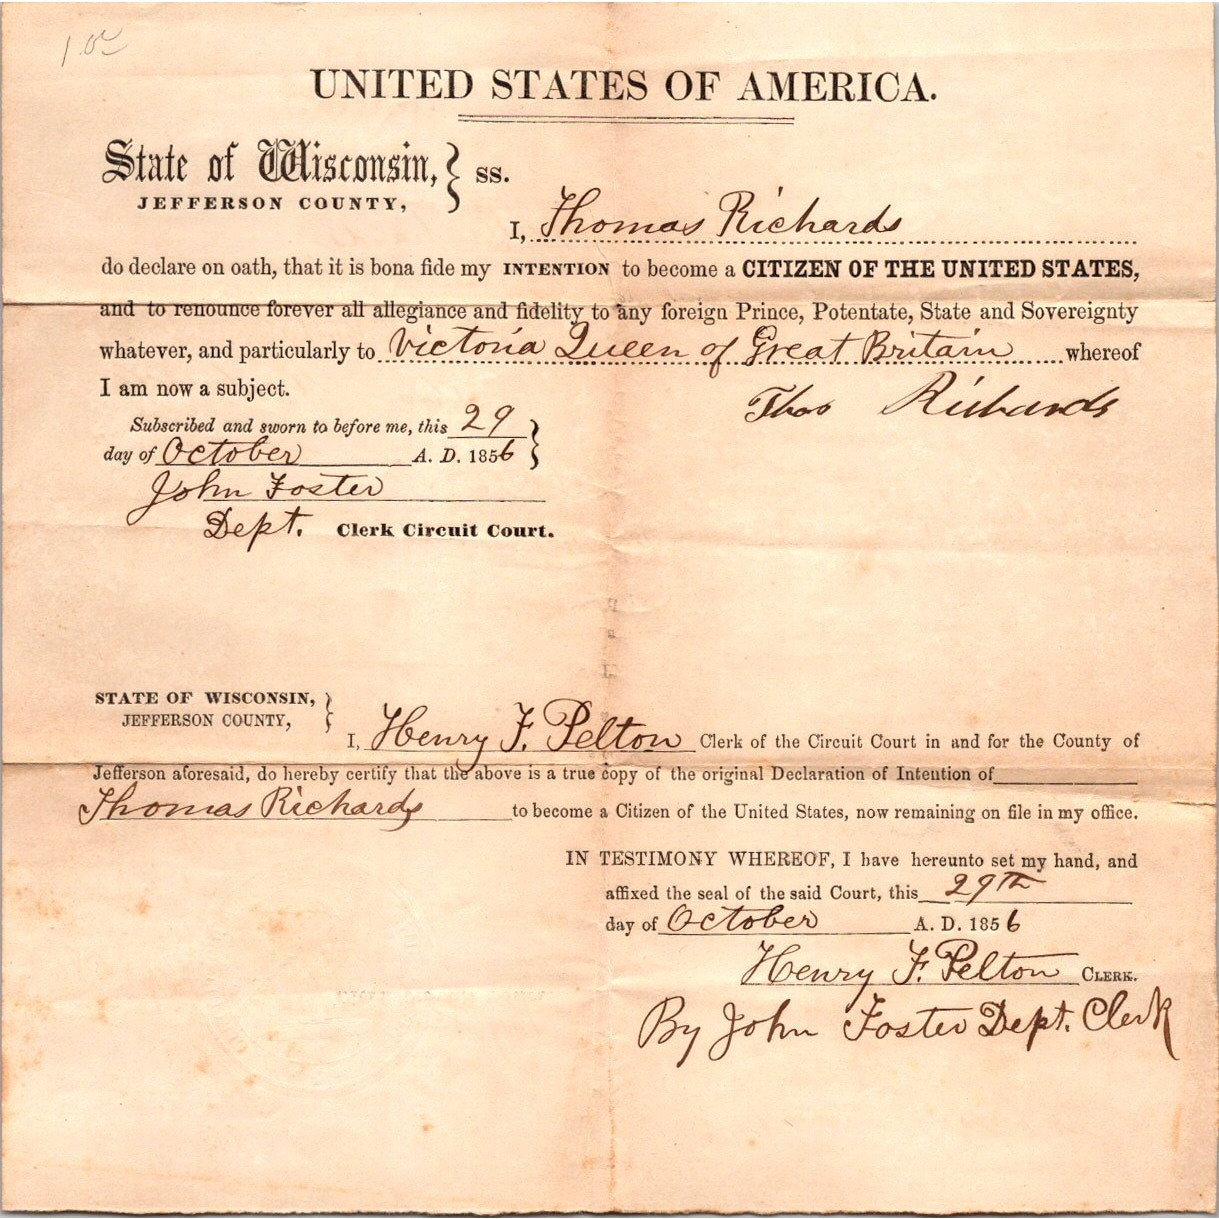 1.00
UNITED STATES OF AMERICA.
State of Wisconsin, } ss.
JEFFERSON COUNTY,
I, Thomas Richards
do declare on oath, that it is bona fide my INTENTION to become a CITIZEN OF THE UNITED STATES,
and to renounce forever all allegiance and fidelity to any foreign Prince, Potentate, State and Sovereignty
whatever, and particularly to Victoria Queen of Great Britain whereof
I am now a subject.
Thos Richards
Subscribed and sworn to before me, this 29
day of October A. D. 1856 }
John Foster
Dept. Clerk Circuit Court.
STATE OF WISCONSIN, }
JEFFERSON COUNTY,
I, Henry F. Pelton Clerk of the Circuit Court in and for the County of
Jefferson aforesaid, do hereby certify that the above is a true copy of the original Declaration of Intention of
Thomas Richards to become a Citizen of the United States, now remaining on file in my office.
IN TESTIMONY WHEREOF, I have hereunto set my hand, and
affixed the seal of the said Court, this 29th
day of October A. D. 1856
Henry F. Pelton CLERK.
By John Foster Dept. Clerk